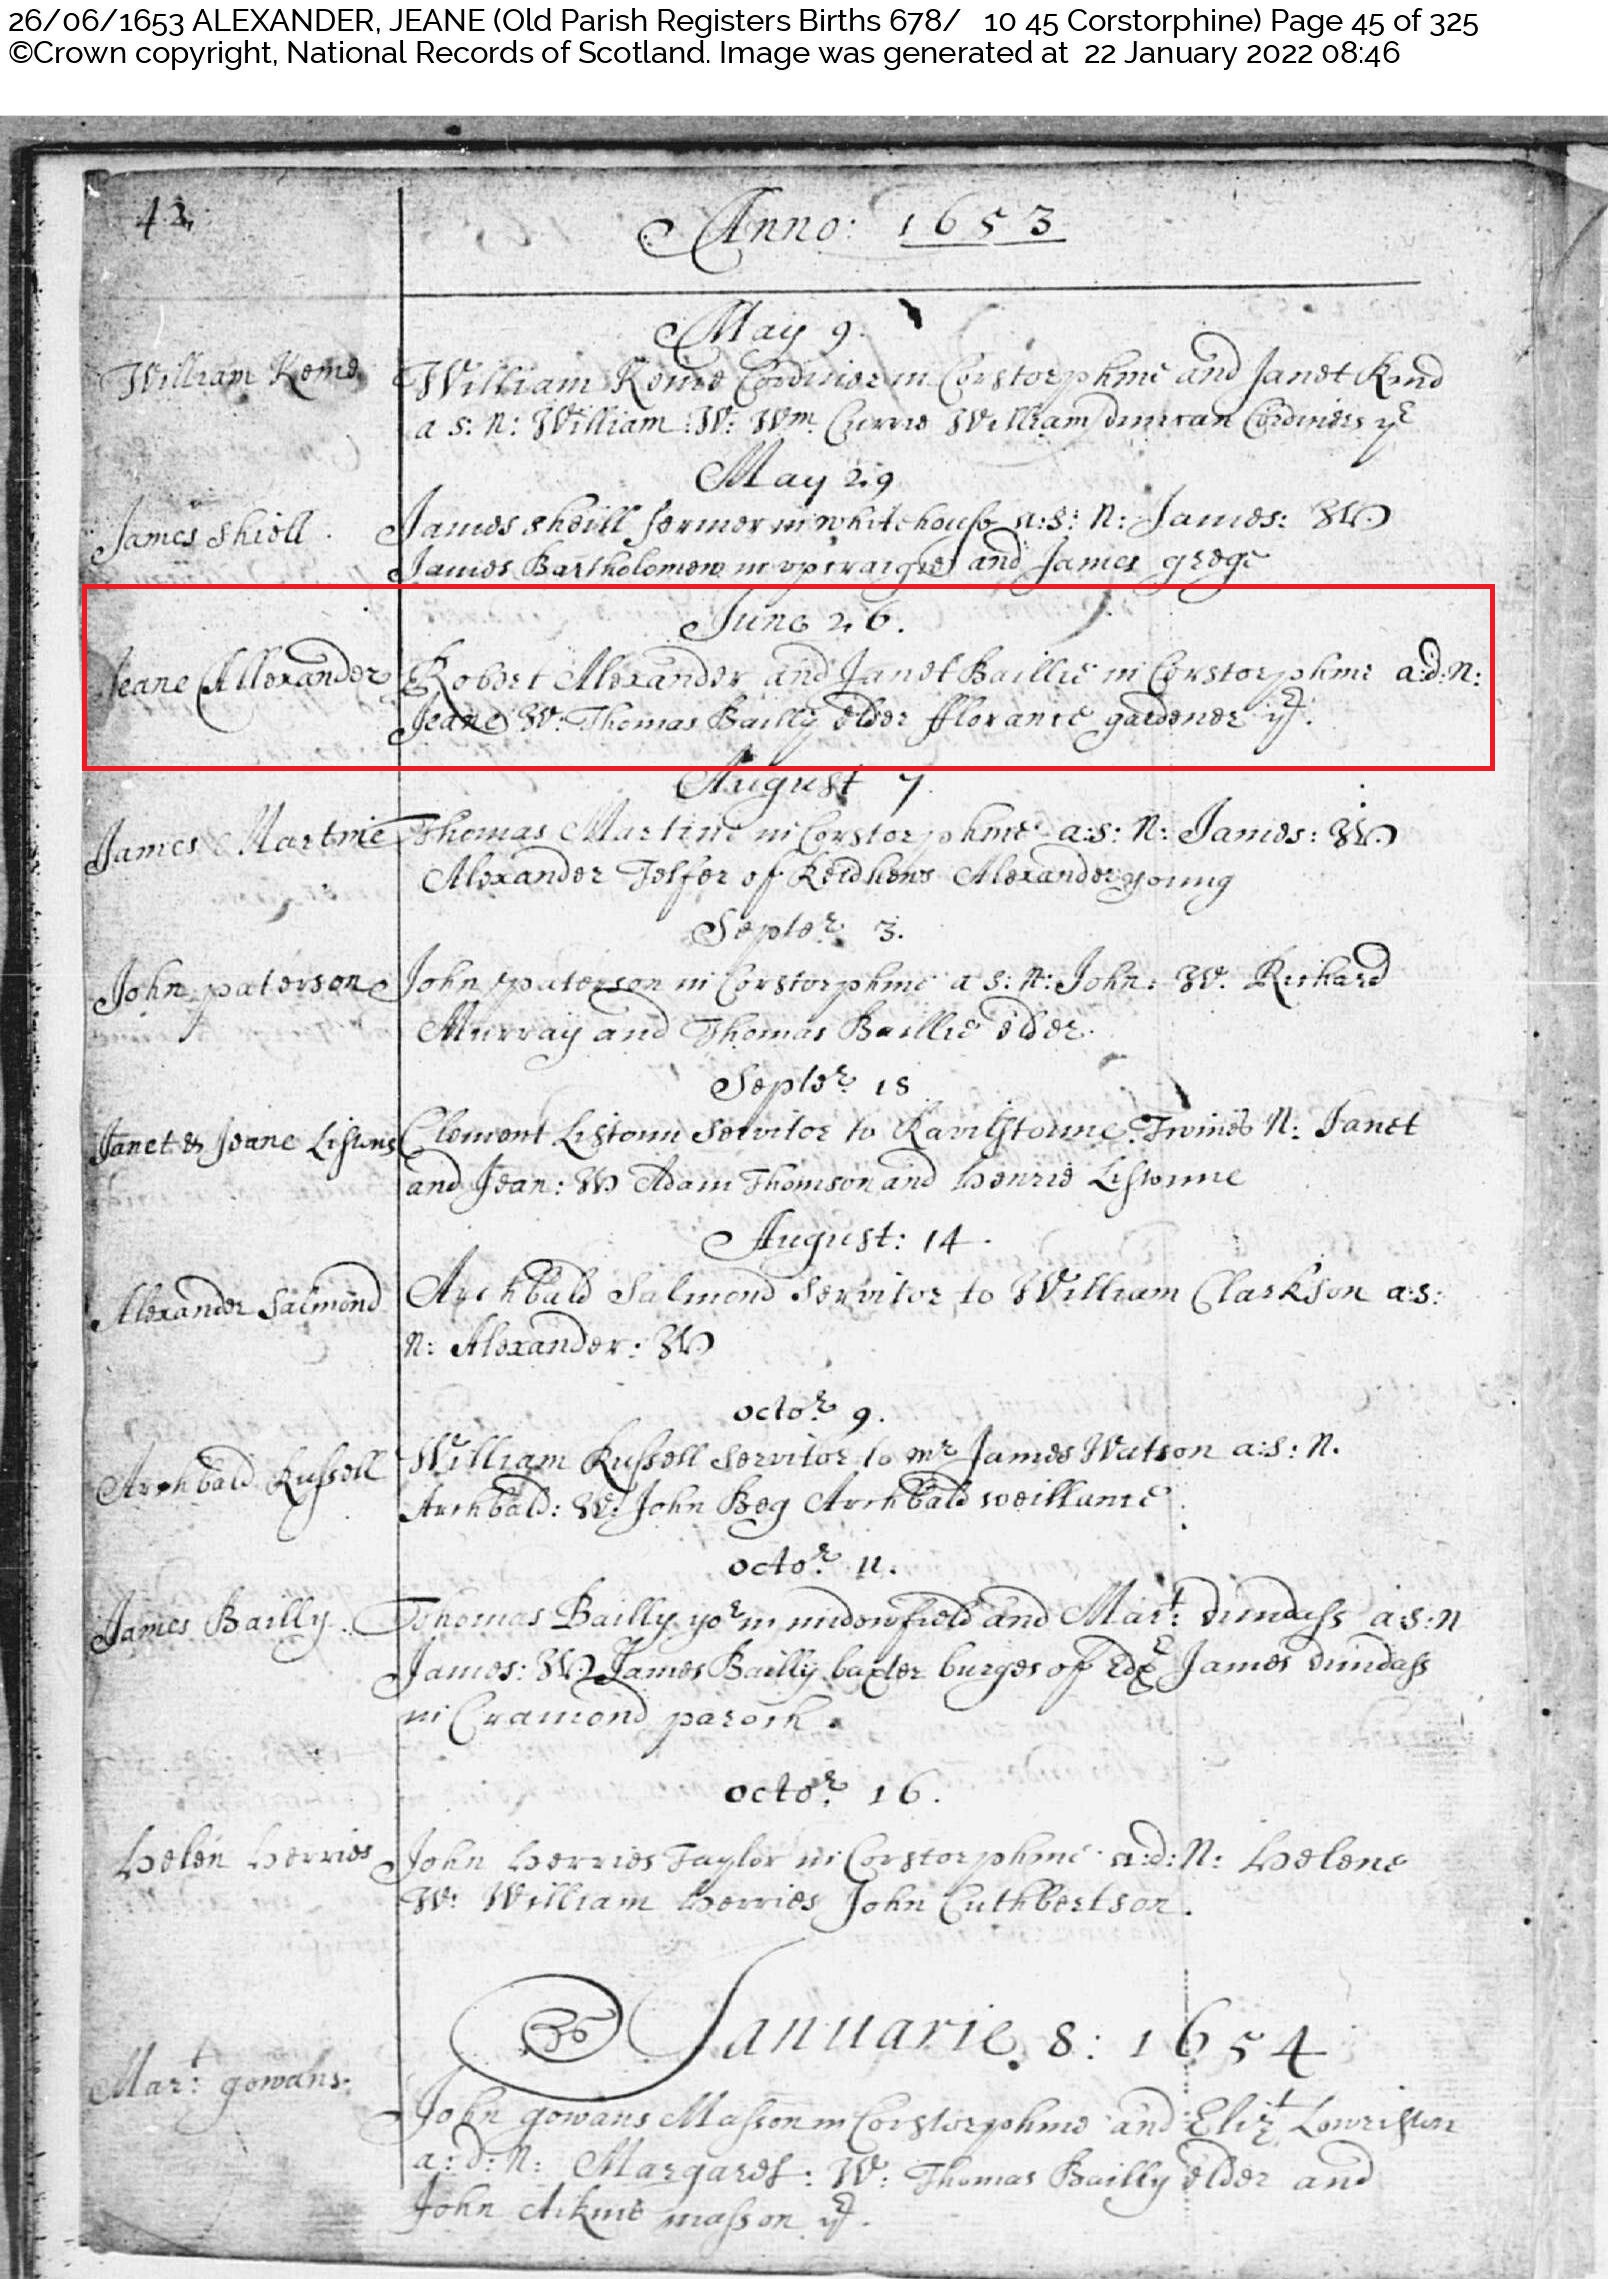 26/06/1653 ALEXANDER, JEANE (Old Parish Registers Births 678/ 10 45 Corstorphine) Page 45 of 325
©Crown copyright, National Records of Scotland. Image was generated at 22 January 2022 08:46
42
Anno: 1653
May 9.
William Keme
William Keme Cordiner in Corstorphine and Janet Kind
a s: N: William: W: Wm. Currie William duncan Cordiners yr
May 29
James Shiell.
James sheill fermer in whitehouse a:s: N: James: W
James Bartholomew in and James grege
June 26.
Jeane Allexander
Robert Alexander and Janet Baillie in Corstorphine a:d:N:
Jeane W: Thomas Bailly elder fflorance gardener yr.
August 7.
James Martine
Thomas Martine in Corstorphine a:s: N: James: W
Alexander Telfer of Reidhews Alexander young
Septer. 3.
John paterson
John paterson in Corstorphine a s: N: John: W: Richard
Murray and Thomas Baillie elder.
Septer. 18
Janet & Jeane Listuns
Clement Listoun Servitor to Ravilstoune Twines N: Janet
and Jean: W Adam Thomson and Henrie Listonne
August: 14.
Alexander Salmond
Archbald Salmond Servitor to William Clarkson a:s:
N: Alexander: W
octor. 9.
Archbald Russell
William Russell Servitor to mr James Watson a:s: N.
Archbald: W: John Beg Archbald
octor. 11.
James Bailly.
Thomas Bailly yor in and Mart: dundass a:s:N
James: W James Bailly baxter burges of Edr James dundass
in Cramond parosh.
octor. 16.
Helen Herries
John Herries Taylor in Corstorphine a:d:N: Helene
W: William Herries John Cuthbertson.
Januarie. 8: 1654
Mart: gowans:
John gowans Masson in Corstorphine and Elizt Lowriston
a:d:N: Margaret: W: Thomas Bailly elder and
John Aikine masson yr.